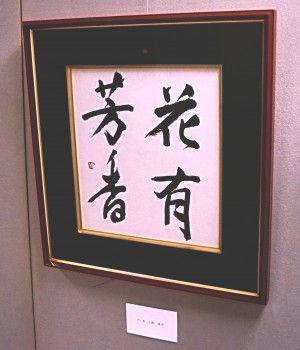 花有
芳香